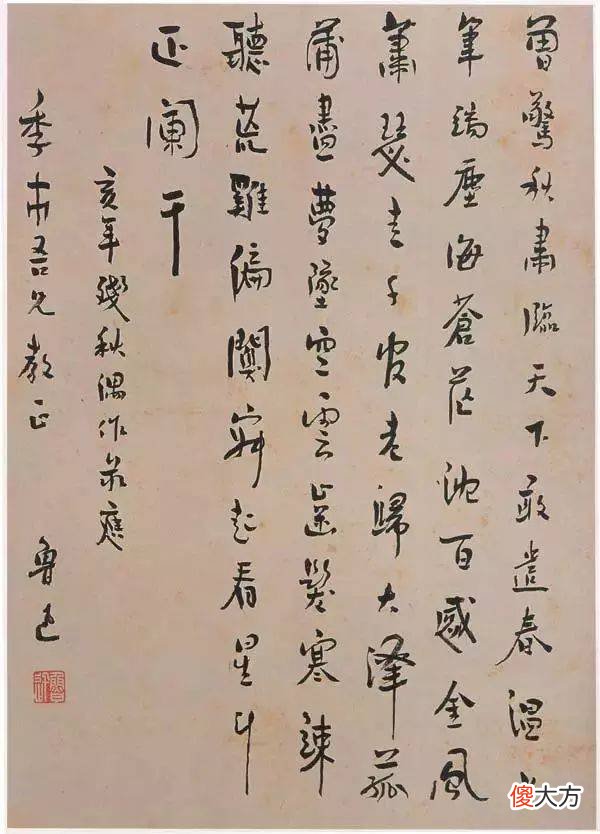 曾驚秋肅臨天下敢遣春溫上
筆端塵海蒼茫沈百感金風
蕭瑟走千官老歸大澤菰
蒲盡夢墜空雲齒髮寒竦
聽荒雞偏闃寂起看星斗
正闌干
亥年殘秋偶作錄應
季市吾兄教正 魯迅
傻大方